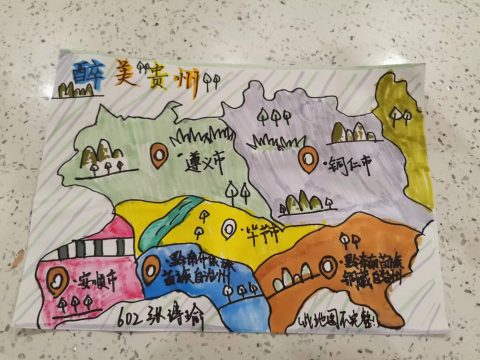 醉美贵州
·遵义市
·铜仁市
·毕节市
·安顺市
·黔南布依族
苗族自治州
·黔东南苗族
侗族自治州
602 张诗瑜
(此地图不完整!)